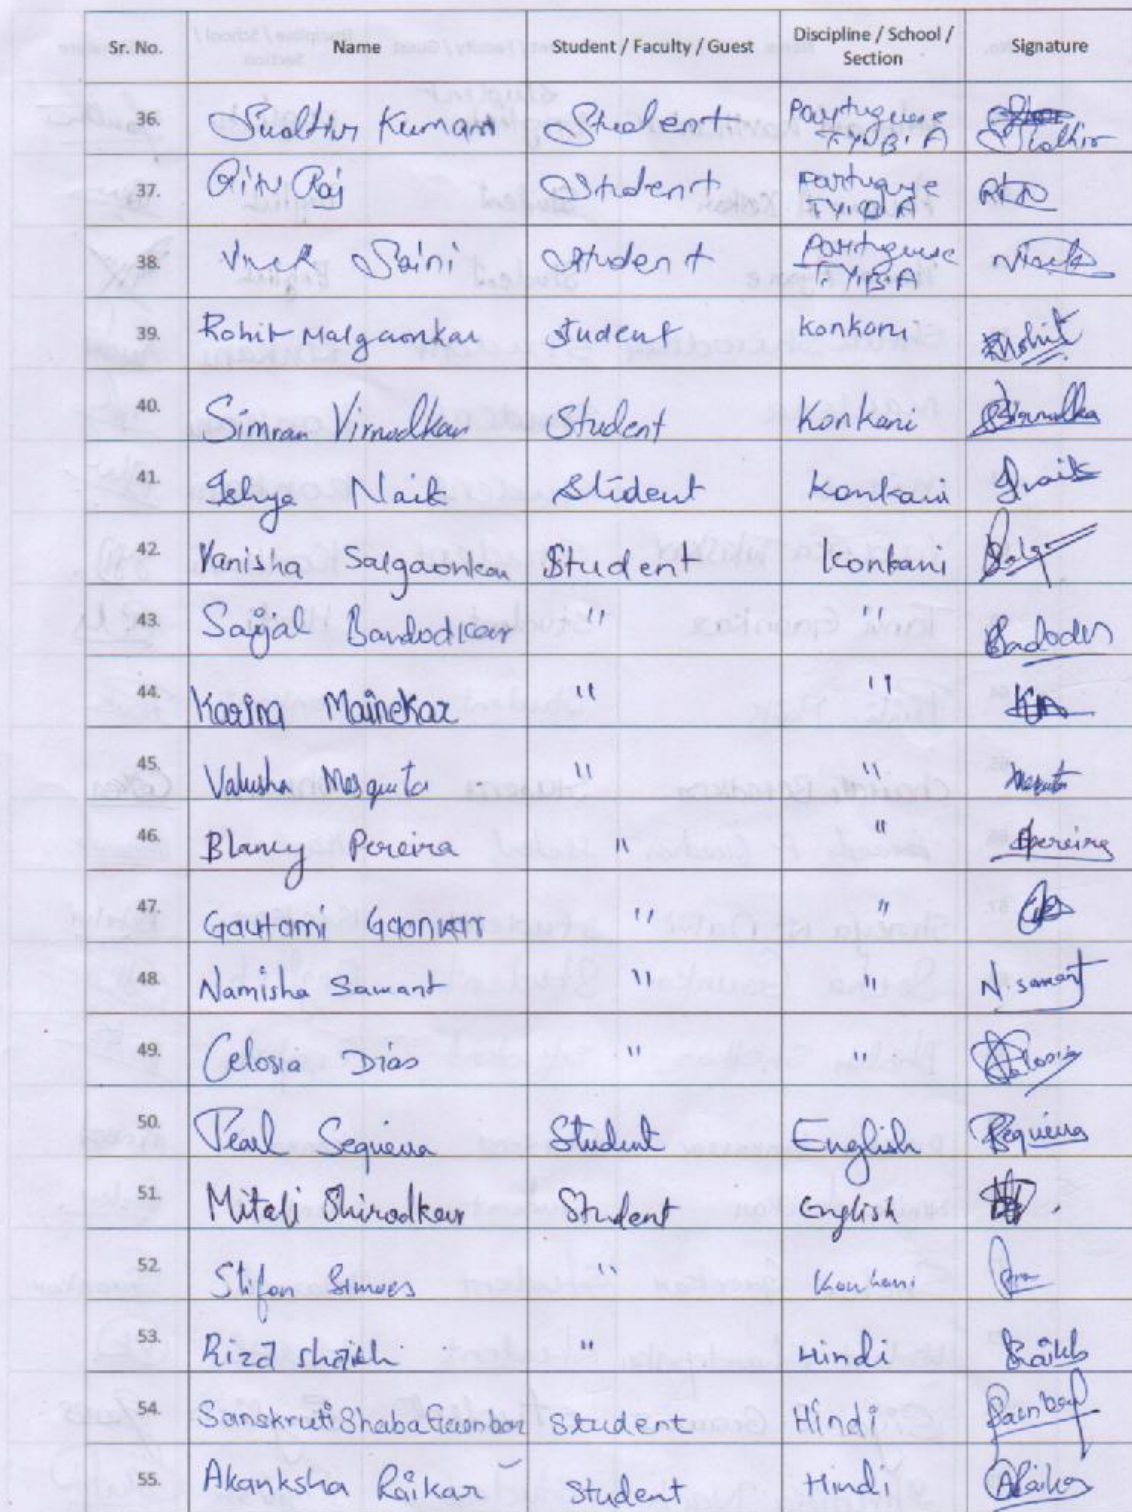 Sr. No. Name Student / Faculty / Guest Discipline / School / Section Signature
36. Kumar Student Portuguese T.Y.B.A
37. Ritu Raj Student Portuguese T.Y.B.A
38. Vivek Saini Student Portuguese T.Y.B.A Vivek
39. Rohit Malgaonkar Student Konkani Rohit
40. Simran Virnodkar Student Konkani
41. Ishya Naik Student Konkani Naik
42. Vanisha Salgaonkar Student Konkani
43. Sayjal Bandodkar " "
44. Karina Mainekar " "
45. Valusha Mesquita " "
46. Blancy Pereira " " Bpereira
47. Gautami Gaonkar " "
48. Namisha Sawant " " N. Sawant
49. Celosia Dias " " Celosia
50. Pearl Sequeira Student English Sequeira
51. Mitali Shirodkar Student English
52. Stifan Simoes " Konkani
53. Riza Shaikh " Hindi
54. Sanskruti Shaba Gaonkar Student Hindi
55. Akanksha Raikar Student Hindi ARaikar